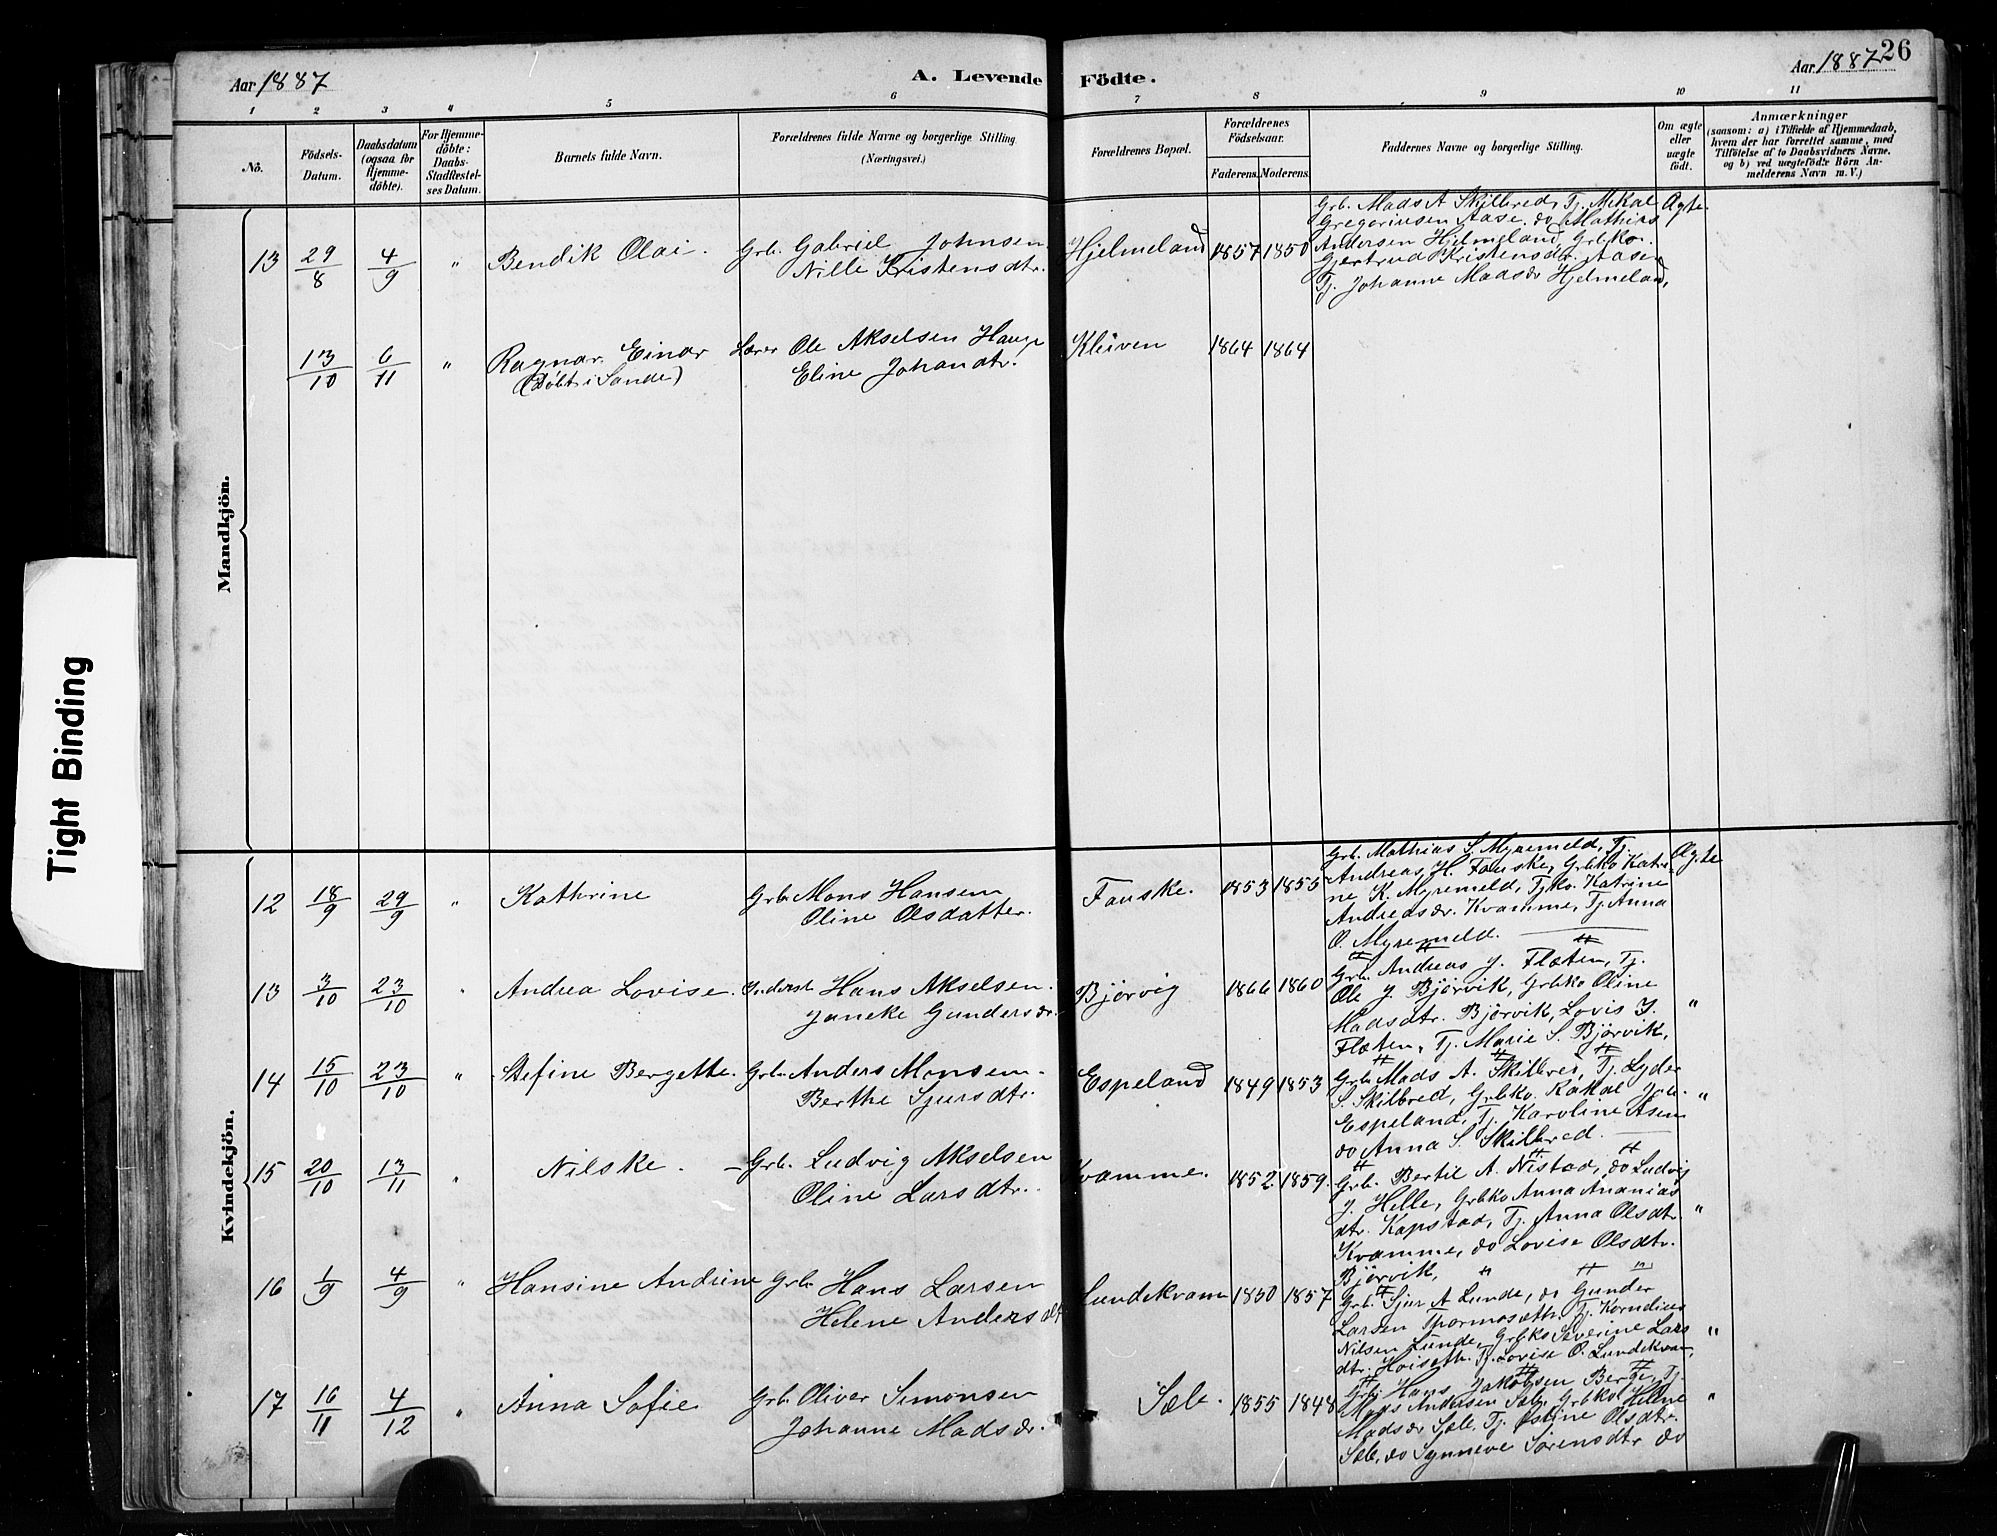 Aar 1887
A. Levende Födte.
Aar 1887
26
1 2 3 4 5 6 7 8 9 10 11
No.
Födsels-
Datum.
Daabsdatum
(ogsaa for
Hjemme-
döbte).
For Hjemme-
döbte:
Daabs-
Stadfæstel-
ses Datum.
Barnets fulde Navn.
Forældrenes fulde Navne og borgerlige Stilling
(Næringsvei.)
Forældrenes Bopæl.
Forældrenes
Födselsaar.
Faderens. Moderens.
Faddernes Navne og borgerlige Stilling.
Om ægte
eller
uægte
födt.
Anmærkninger
(saasom: a) i Tilfælde af Hjemmedaab,
hvem der har forrettet samme, med
Tilföielse af to Daabsvidners Navne,
og b) ved uægtefödte Börn An-
melderens Navn m. V.)
Mandkjön.
13 29/8 4/9 " Bendik Olai. Grb. Gabriel Johnsen
Nille Kristensdtr. Hjelmeland 1857 1850
Grb. Mads A Skilbred, Tj. Mikal
Gregoriusen Aase, do Mathias
Andersen Hjelmeland, Grbko.
Gjertrud Kristensdtr. Aase,
Tj. Johanne Madsdr Hjelmeland,
Ægte.
13/10 6/11 " Ragnar Einar
(Döbt i Sande)
Lærer Ole Akselsen Hauge
Eline Johandtr.
Kleiven 1864 1864
Kvindekjön.
12 18/9 29/9 " Kathrine Grb. Mons Hansen
Oline Olsdatter. Fauske. 1853 1855
Grb. Mathias S. Myremeld, Tj.
Andreas H. Fauske, Grbko Katri-
ne K. Myremeld, Tjko. Katrine
Andreasdr. Kvamme, Tj. Anna
O. Myremeld.
Ægte
13 3/10 23/10 " Andrea Lovise. Inderst Hans Akselsen.
Janeke Gundersdr. Bjørvig 1866 1860
Grb. Andreas J. Flæten, Tj.
Ole J. Bjørvik, Grbko Oline
Madsdtr. Bjørvik, Lovis J.
Flæten, Tj. Marie S. Bjørvik,
"
14 15/10 23/10 " Stefine Bergette. Grb. Anders Monsen.
Berthe Sjursdtr. Espeland 1849 1853
Grb. Mads A. Skilbred, Tj. Lyder
S. Skilbred, Grbko. Rakal
Espeland, Tj. Karoline
do Anna S. Skilbred.
"
15 20/10 13/11 " Nilske. Grb. Ludvig Akselsen
Oline Larsdtr. Kvamme. 1852 1859.
Grb. Bertil A. Nistad, do Ludvig
J. Helle, Grbko Anna Ananias
dtr. Kapstad, Tj. Anna Olsdtr.
Kvamme, do Lovise Olsdtr.
Bjørvik,
"
16 1/9 4/9 " Hansine Andrine Grb. Hans Larsen
Helene Andersdt Lundekvam 1850 1857
Grb. Sjur A Lunde, do Gunder
Larsen Thormosæth. Tj. Kornelius
Nilsen Lunde, Grbko Severine Lars
dtr. Hoiseth. Tj. Lovise O. Lundekvam,
"
17 16/11 4/12 " Anna Sofie Grb. Oliver Simonsen
Johanne Madsdr. Sæle. 1855 1848
Grb. Hans Jakobsen Berge, Tj.
Mads Andersen Sæle, Grbko Helene
Madsdr Sæle, Tj. Østine Olsdtr.
Sæle, do Synneve Sørensdtr do
"
Tight Binding